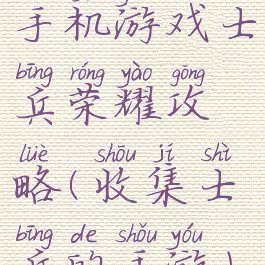 手机游戏士
bīng róng yào gōng
兵荣耀攻
lüè shōu jí shì
略(收集士
bīng de shǒu yóu
兵的手游)